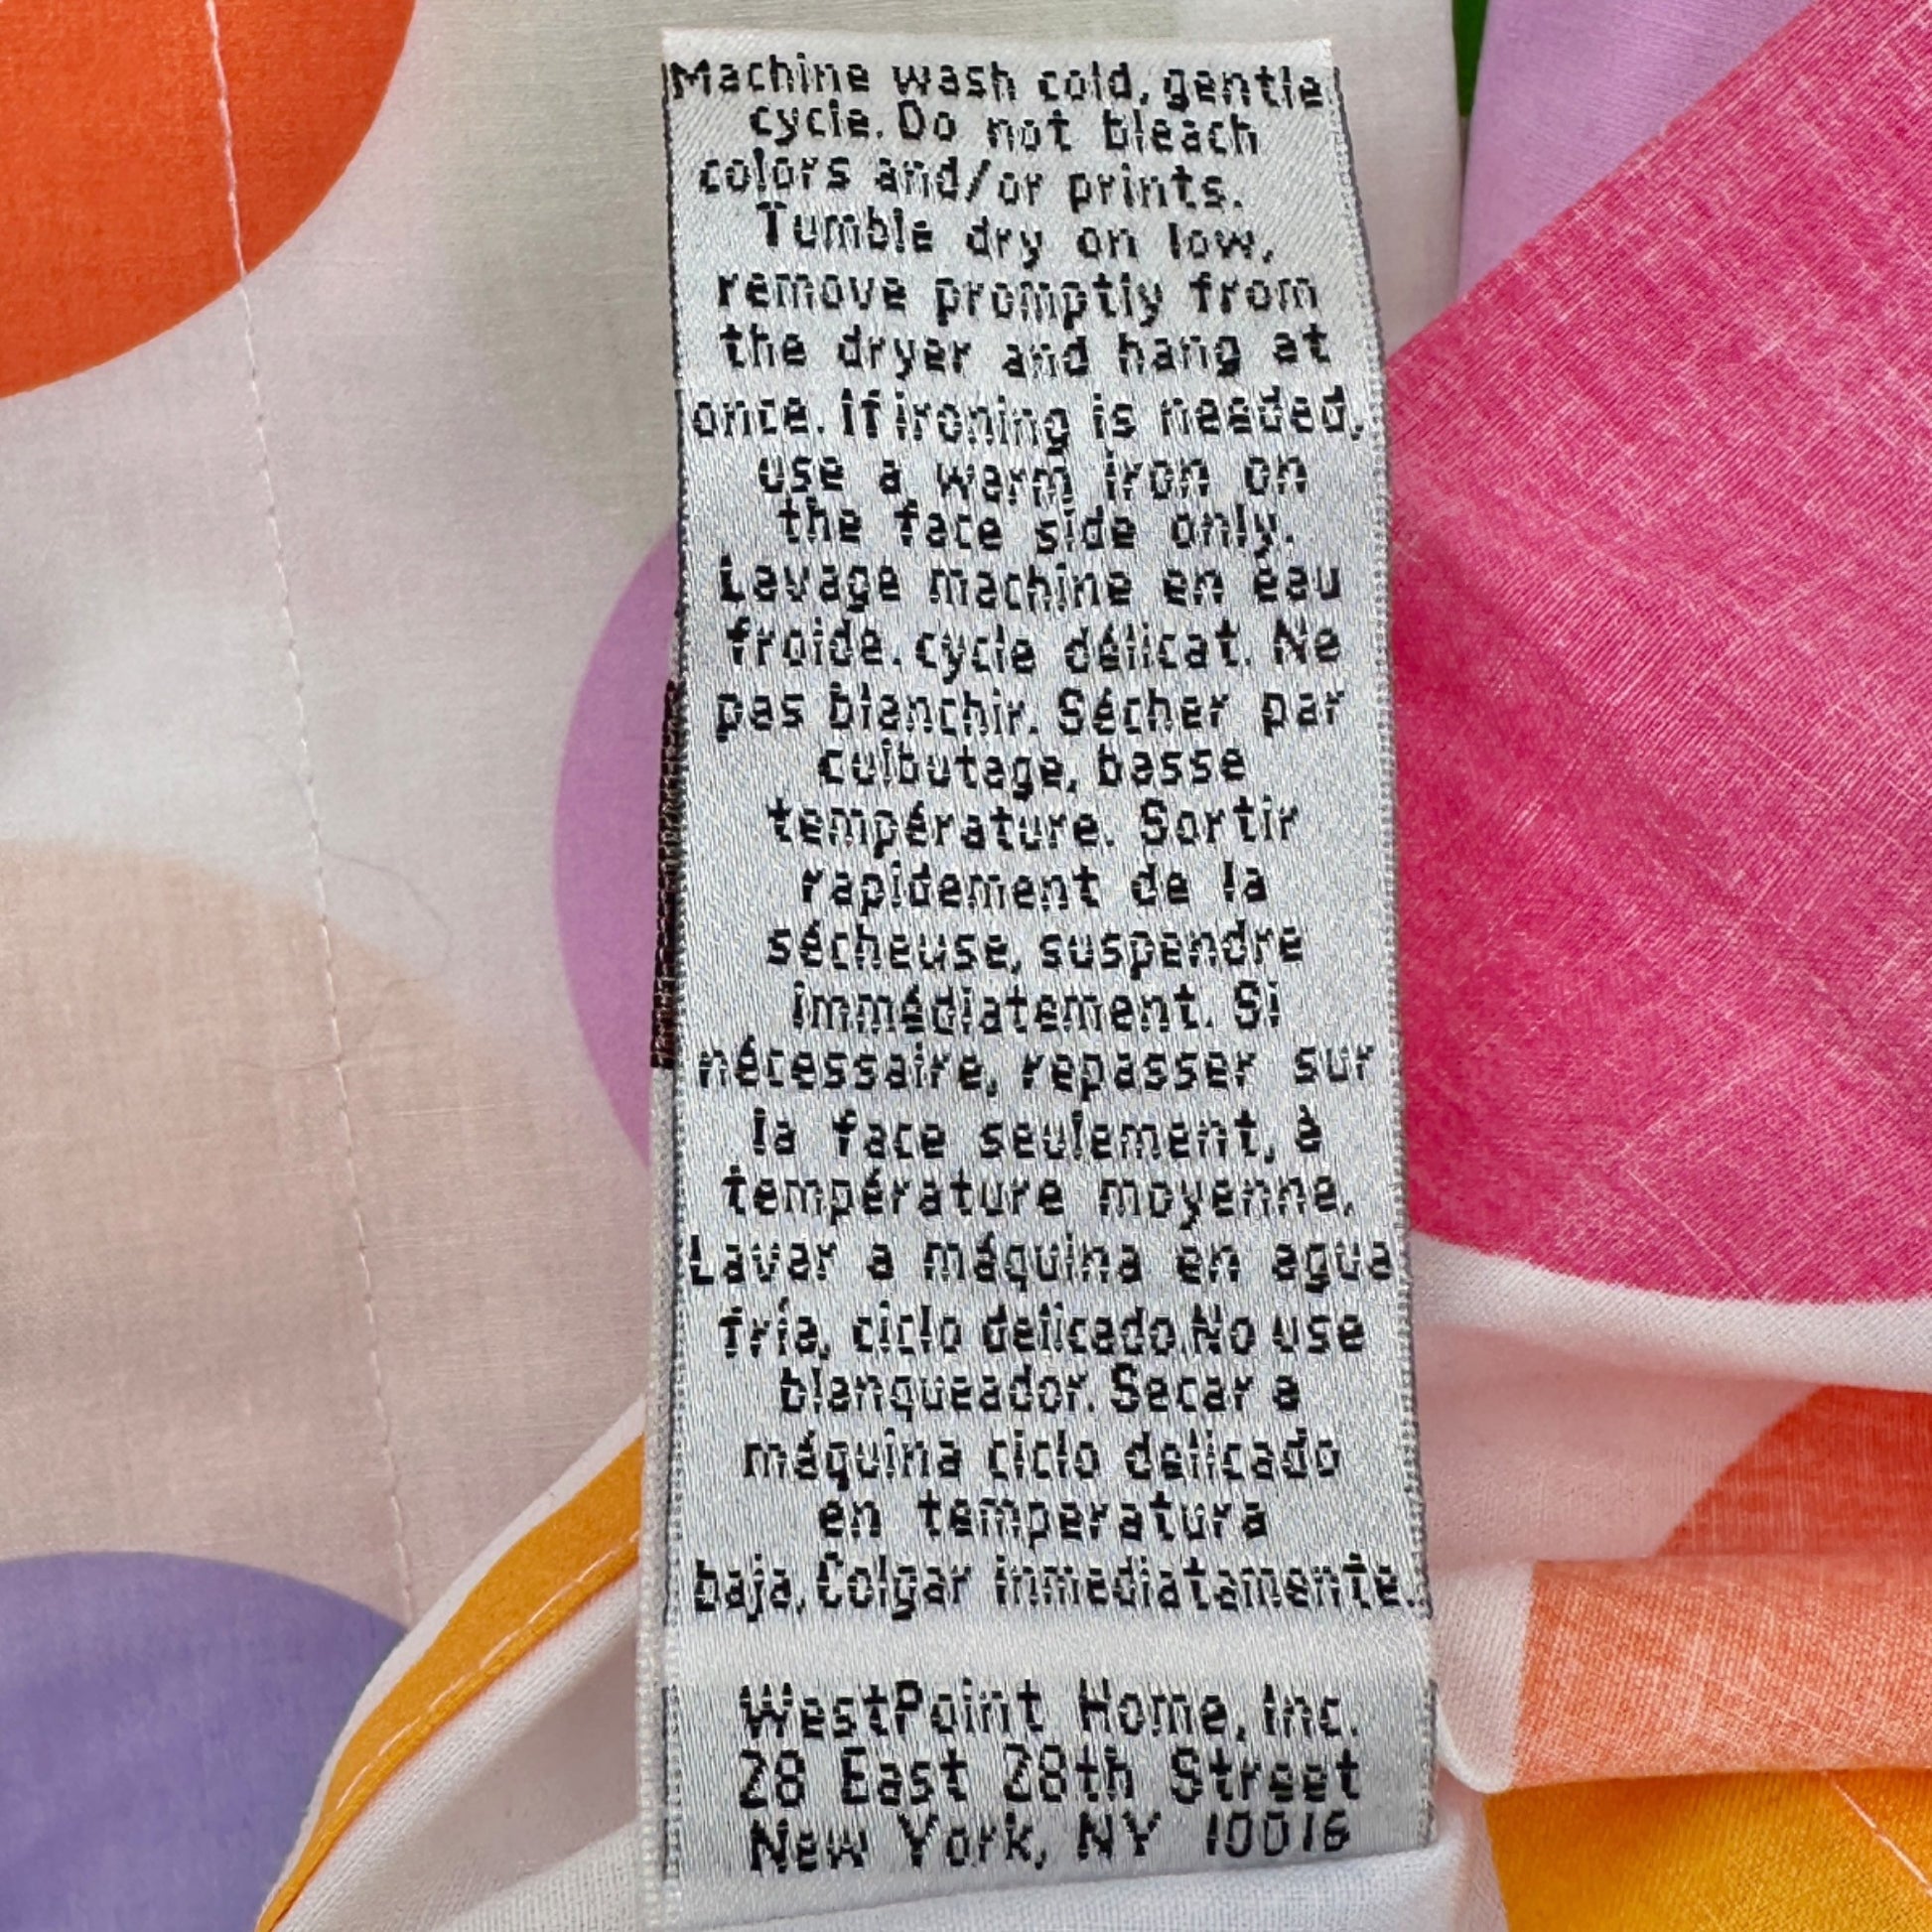 Machine wash cold, gentle
cycle. Do not bleach
colors and/or prints.
Tumble dry on low,
remove promptly from
the dryer and hang at
once. If ironing is needed,
use a warm iron on
the face side only.
Lavage machine en eau
froide. cycle délicat. Ne
pas blanchir. Sécher par
culbutage, basse
température. Sortir
rapidement de la
sécheuse, suspendre
immédiatement. Si
nécessaire, repasser sur
la face seulement, à
température moyenne.
Lavar a máquina en agua
fría, ciclo delicado.No use
blanqueador. Secar a
máquina ciclo delicado
en temperatura
baja. Colgar inmediatamente.
WestPoint Home, Inc.
28 East 28th Street
New York, NY 10016